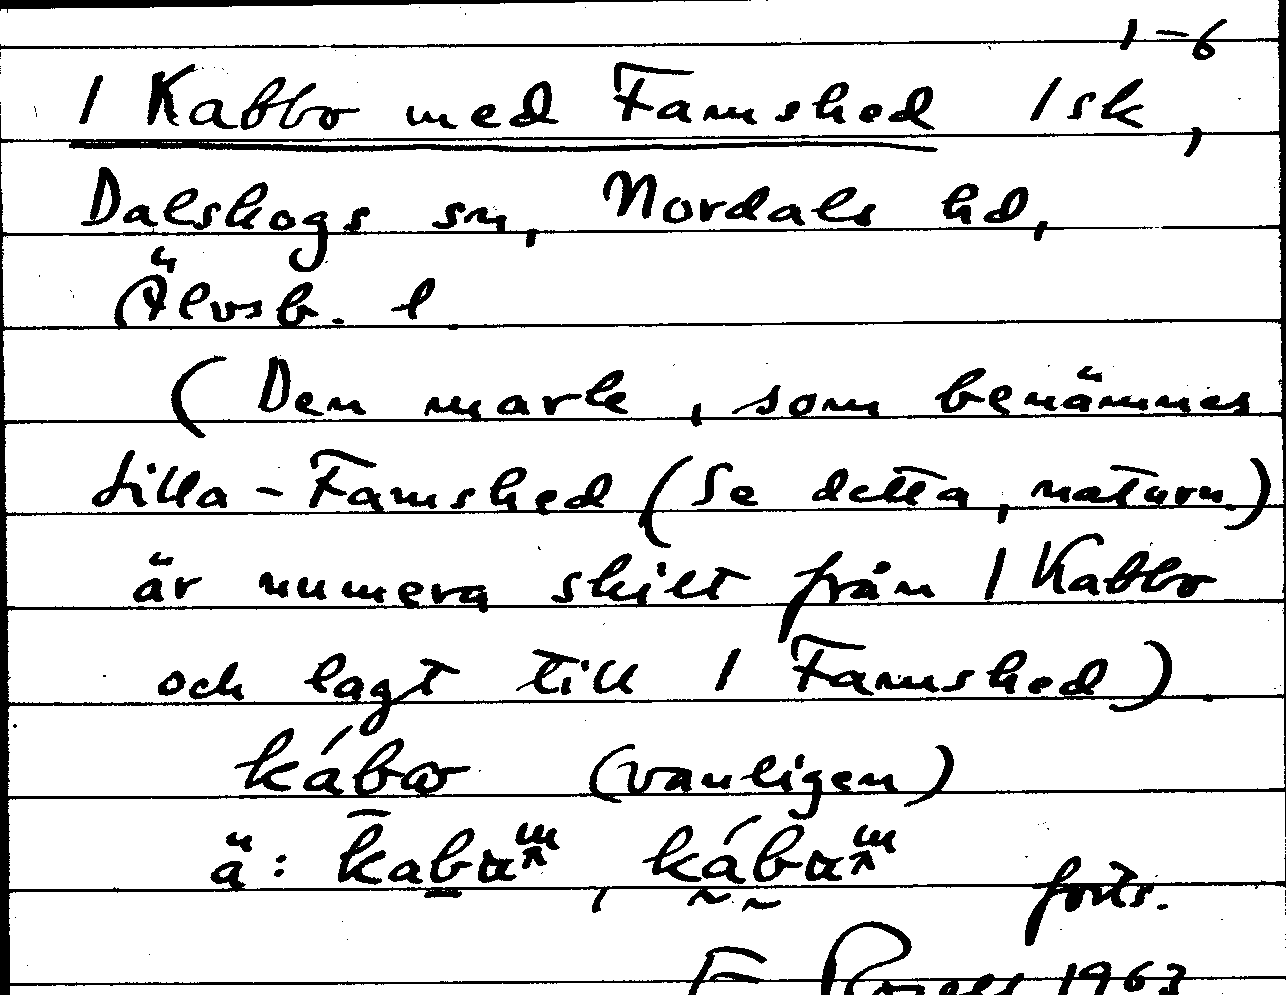 1-6
1 Kabbo med Famshed 1 sk,
Dalskogs sn, Nordals hd,
Älvsb. l.
(Den mark, som benämnes
Lilla-Famshed (Se detta, naturn.)
är numera skilt från 1 Kabbo
och lagt till 1 Famshed).
kábω (vanligen)
ä: kabα, kábα forts.
F. 1963